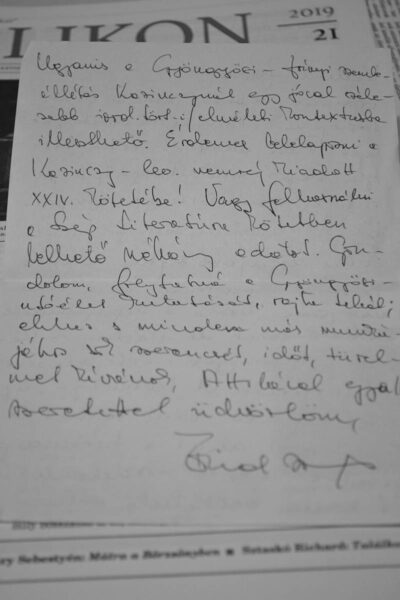 LIKON
2019
21
Ugyanis a Gyöngyösi – Zrínyi szembe-
állítás Kazinczynál egy jóval széle-
sebb irod.tört.-i/elméleti kontextusba
illeszthető. Érdemes belelapozni a
Kazinczy – lev. nemrég kiadott
XXIV. kötetébe! Vagy felhasználni
a Szép Literatúra kötetben
lelhető néhány adatot. Gon-
dolom, folytatná a Gyöngyösi-
utóélet kutatását, rajta tehát;
ehhez s minden más munká-
jához sok szerencsét, időt, türel-
met kívánok, Attilával együtt
szeretettel üdvözlöm,
ry Sebestyén: Mátra a Börzsönyben ■ Sztaskó Richard: Találko